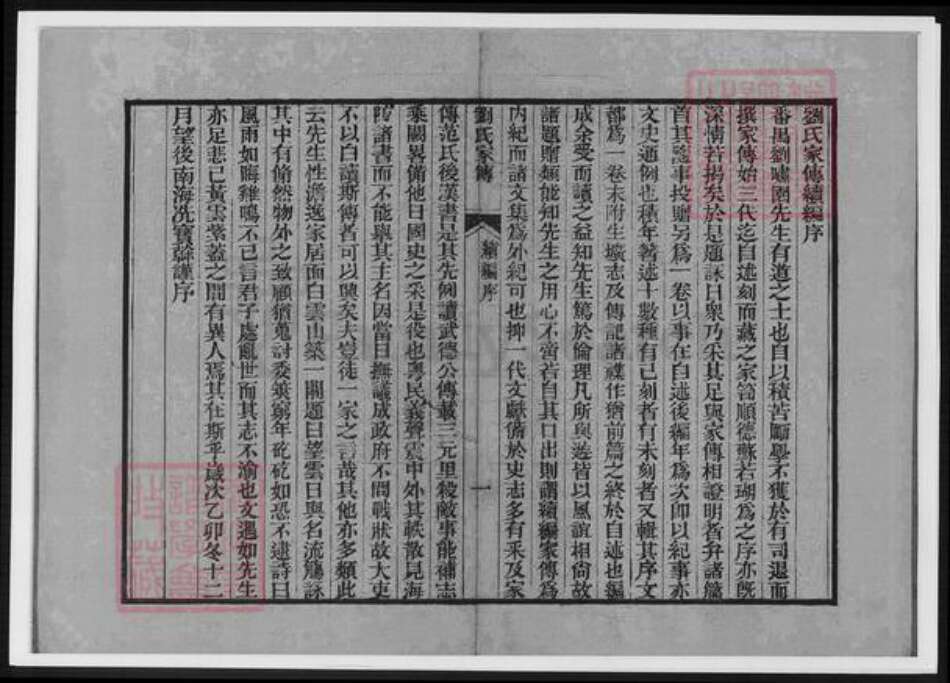 劉氏家傳續編序
番禺劉嘯園先生有道之士也自以積苦勵學不獲於有司退而
撰家傳始三代迄自述刻而藏之家笥順德蘇若瑚為之序亦既
深情若揭矣於是題詠日衆乃采其足與家傳相證明者弁諸篇
首其隱事投贈另為一卷以事在自述後編年為次即以紀事亦
文史通例也積年著述十數種有已刻者有未刻者又輯其序文
都為一卷末附生壙志及傳記諸襍作猶前篇之終於自述也編
成余受而讀之益知先生篤於倫理凡所與遊皆以風誼相尙故
諸題贈類能知先生之用心不啻若自其口出則謂續編家傳為
內紀而諸文集為外紀可也抑一代文獻備於史志多有采及家
劉氏家傳
續編序
一
傳范氏後漢書是其先例讀武德公傳載三元里殺敵事能補志
乘闕畧備他日國史之采是役也粵民義聲震中外其軼散見海
防諸書而不能與其主名因當日撫議成政府不問戰狀故大吏
不以白讀斯傳者可以興矣夫豈徒一家之言哉其他亦多類此
云先生性澹逸家居面白雲山築一閣題曰望雲日與名流觴詠
其中有翛然物外之致顧猶蒐討委瑣窮年矻矻如恐不逮詩曰
風雨如晦雞鳴不已言君子處亂世而其志不渝也文遇如先生
亦足悲已黃雲紫蓋之間有異人焉其在斯乎歲次乙卯冬十二
月望後南海冼寶榦謹序